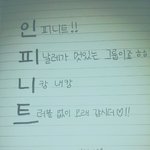 인피니트!!
피날레가 멋있는 그룹이죠 ㅎㅎ
니캉 내캉
트러블 없이 오래 갑시다♡!!